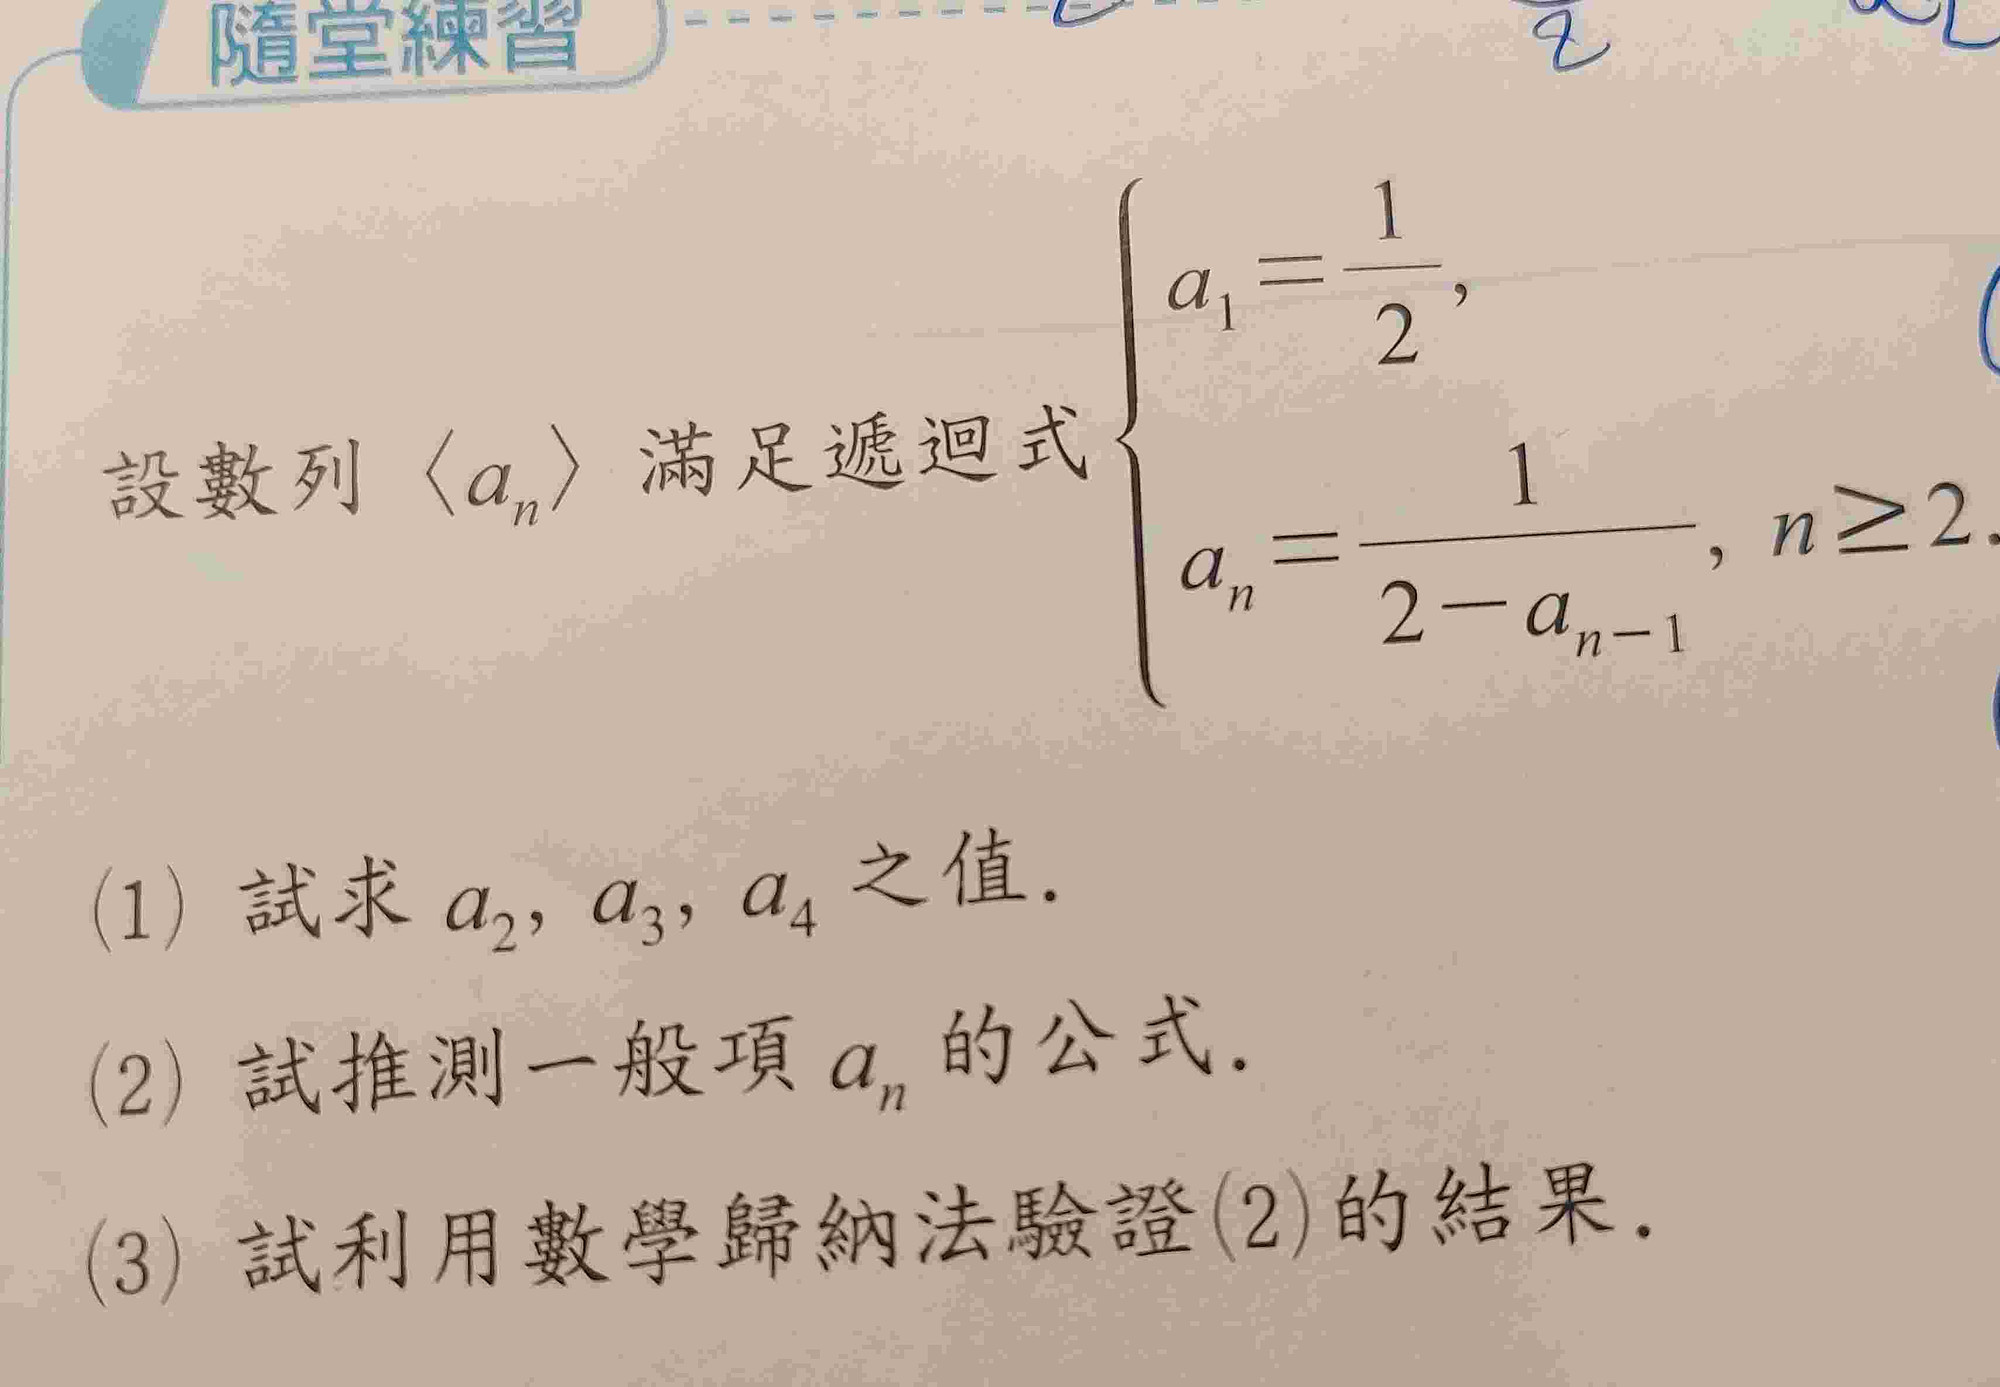 隨堂練習
設數列〈aₙ〉滿足遞迴式 { a₁ = 1/2,
aₙ = 1/(2 − aₙ₋₁), n ≥ 2.
(1) 試求 a₂, a₃, a₄ 之值.
(2) 試推測一般項 aₙ 的公式.
(3) 試利用數學歸納法驗證(2)的結果.